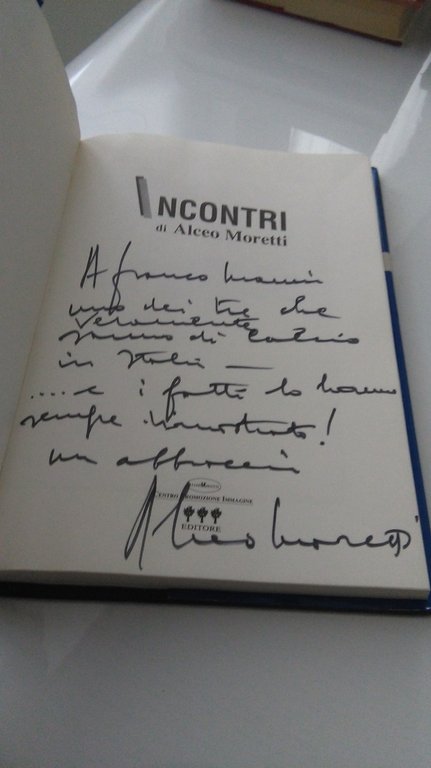 INCONTRI
di Alceo Moretti
A Franco Manni
uno dei tre che
veramente
sanno di calcio
in Italia —
.... e i fatti lo hanno
sempre dimostrato!
un abbraccio
CENTRO PROMOZIONE IMMAGINE
EDITORE
Alceo Moretti